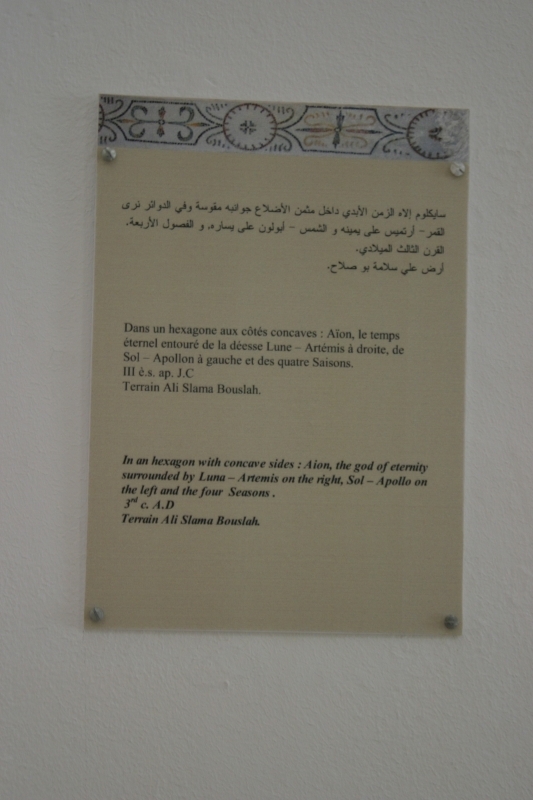 سايكلوم إلاه الزمن الأبدي داخل مثمن الأضلاع جوانبه مقوسة وفي الدوائر نرى
القمر- أرتميس على يمينه و الشمس - أبولون على يساره. و الفصول الأربعة.
القرن الثالث الميلادي.
أرض علي سلامة بو صلاح.
Dans un hexagone aux côtés concaves : Aïon, le temps
éternel entouré de la déesse Lune – Artémis à droite, de
Sol – Apollon à gauche et des quatre Saisons.
III è.s. ap. J.C
Terrain Ali Slama Bouslah.
In an hexagon with concave sides : Aion, the god of eternity
surrounded by Luna – Artemis on the right, Sol – Apollo on
the left and the four Seasons .
3rd c. A.D
Terrain Ali Slama Bouslah.